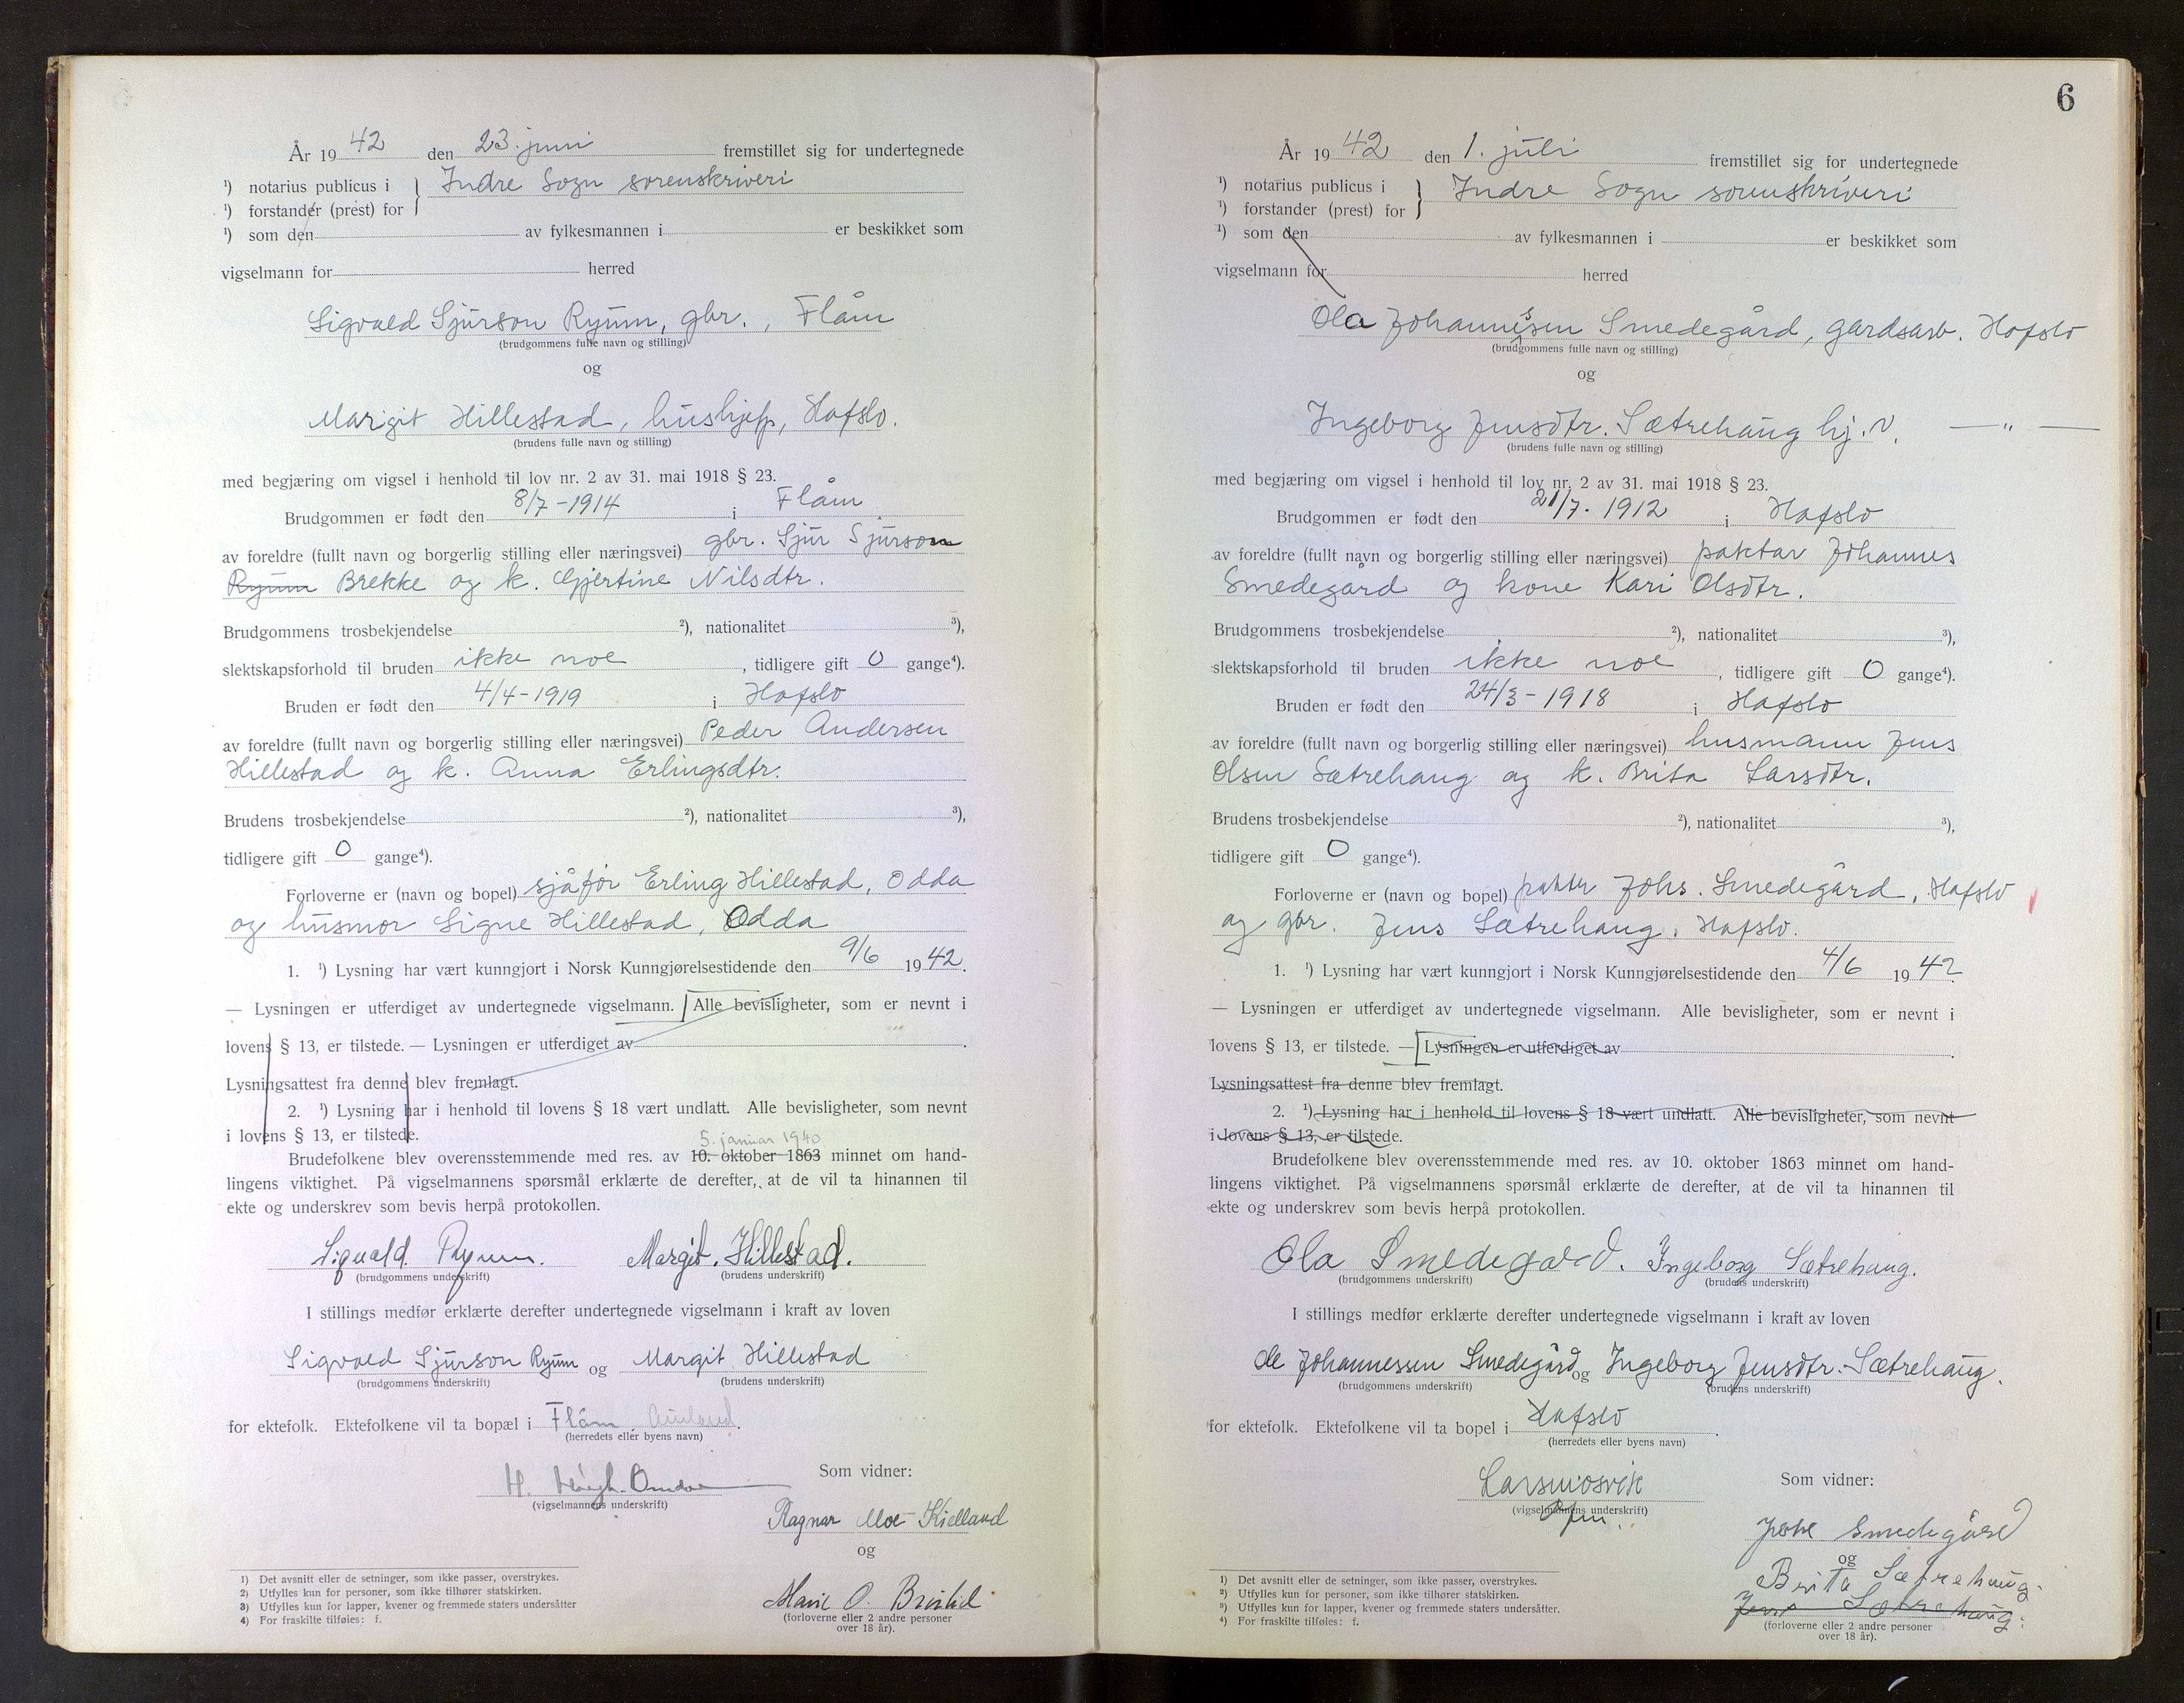 År 1942 den 23. juni fremstillet sig for undertegnede
¹) notarius publicus i } Indre Sogn sorenskriveri
¹) forstander (prest) for
¹) som den av fylkesmannen i er beskikket som
vigselmann for herred
Sigvald Sjurson Ryum, gbr., Flåm
(brudgommens fulle navn og stilling)
og
Margit Hillestad, hushjelp, Hafslo.
(brudens fulle navn og stilling)
med begjæring om vigsel i henhold til lov nr. 2 av 31. mai 1918 § 23.
Brudgommen er født den 8/7-1914 i Flåm
av foreldre (fullt navn og borgerlig stilling eller næringsvei) gbr. Sjur Sjurson
Ryum Brekke og k. Gjertine Nilsdtr.
Brudgommens trosbekjendelse ²), nationalitet ³),
slektskapsforhold til bruden ikke noe, tidligere gift 0 gange⁴).
Bruden er født den 4/4-1919 i Hafslo
av foreldre (fullt navn og borgerlig stilling eller næringsvei) Peder Andersen
Hillestad og k. Anna Erlingsdtr.
Brudens trosbekjendelse ²), nationalitet ³),
tidligere gift 0 gange⁴).
Forloverne er (navn og bopel) sjåfør Erling Hillestad, Odda
og husmor Signe Hillestad, Odda
1. ¹) Lysning har vært kunngjort i Norsk Kunngjørelsestidende den 9/6 1942.
— Lysningen er utferdiget av undertegnede vigselmann. Alle bevisligheter, som er nevnt i
lovens § 13, er tilstede. — Lysningen er utferdiget av .
Lysningsattest fra denne blev fremlagt.
2. ¹) Lysning har i henhold til lovens § 18 vært undlatt. Alle bevisligheter, som nevnt
i lovens § 13, er tilstede.
5. januar 1940
Brudefolkene blev overensstemmende med res. av 10. oktober 1863 minnet om hand-
lingens viktighet. På vigselmannens spørsmål erklærte de derefter, at de vil ta hinannen til
ekte og underskrev som bevis herpå protokollen.
Sigvald Ryum. Margit. Hillestad.
(brudgommens underskrift) (brudens underskrift)
I stillings medfør erklærte derefter undertegnede vigselmann i kraft av loven
Sigvald Sjurson Ryum og Margit Hillestad
(brudgommens underskrift) (brudens underskrift)
for ektefolk. Ektefolkene vil ta bopæl i Flåm, Aurland.
(herredets eller byens navn)
Som vidner:
H.
(vigselmannens underskrift)
Ragnar Moe Kielland
og
Marie O.
(forloverne eller 2 andre personer
over 18 år).
1) Det avsnitt eller de setninger, som ikke passer, overstrykes.
2) Utfylles kun for personer, som ikke tilhører statskirken.
3) Utfylles kun for lapper, kvener og fremmede staters undersåtter
4) For fraskilte tilføies: f.
6
År 1942 den 1. juli fremstillet sig for undertegnede
¹) notarius publicus i } Indre Sogn sorenskriveri
¹) forstander (prest) for
¹) som den av fylkesmannen i er beskikket som
vigselmann for herred
Ola Johannessen Smedegård, gardsarb. Hafslo
(brudgommens fulle navn og stilling)
og
Ingeborg Jensdtr. Sætrehaug hj.v. — " —
(brudens fulle navn og stilling)
med begjæring om vigsel i henhold til lov nr. 2 av 31. mai 1918 § 23.
Brudgommen er født den 21/7-1912 i Hafslo
av foreldre (fullt navn og borgerlig stilling eller næringsvei) paktar Johannes
Smedegård og kone Kari Olsdtr.
Brudgommens trosbekjendelse ²), nationalitet ³),
slektskapsforhold til bruden ikke noe, tidligere gift 0 gange⁴).
Bruden er født den 24/3-1918 i Hafslo
av foreldre (fullt navn og borgerlig stilling eller næringsvei) husmann Jens
Olsen Sætrehaug og k. Brita Larsdtr.
Brudens trosbekjendelse ²), nationalitet ³),
tidligere gift 0 gange⁴).
Forloverne er (navn og bopel) paktar Johs. Smedegård, Hafslo
og gbr. Jens Sætrehaug, Hafslo.
1. ¹) Lysning har vært kunngjort i Norsk Kunngjørelsestidende den 4/6 1942.
— Lysningen er utferdiget av undertegnede vigselmann. Alle bevisligheter, som er nevnt i
lovens § 13, er tilstede. — Lysningen er utferdiget av .
Lysningsattest fra denne blev fremlagt.
2. ¹) Lysning har i henhold til lovens § 18 vært undlatt. Alle bevisligheter, som nevnt
i lovens § 13, er tilstede.
Brudefolkene blev overensstemmende med res. av 10. oktober 1863 minnet om hand-
lingens viktighet. På vigselmannens spørsmål erklærte de derefter, at de vil ta hinannen til
ekte og underskrev som bevis herpå protokollen.
Ola Smedegard. Ingeborg Sætrehaug.
(brudgommens underskrift) (brudens underskrift)
I stillings medfør erklærte derefter undertegnede vigselmann i kraft av loven
Ole Johannessen Smedegård og Ingeborg Jensdtr. Sætrehaug.
(brudgommens underskrift) (brudens underskrift)
for ektefolk. Ektefolkene vil ta bopel i Hafslo.
(herredets eller byens navn)
Som vidner:
(vigselmannens underskrift)
Smedegård
og
Brita Sætrehaug.
Jens Sætrehaug.
(forloverne eller 2 andre personer
over 18 år).
¹) Det avsnitt eller de setninger, som ikke passer, overstrykes.
²) Utfylles kun for personer, som ikke tilhører statskirken.
³) Utfylles kun for lapper, kvener og fremmede staters undersåtter.
⁴) For fraskilte tilføies: f.